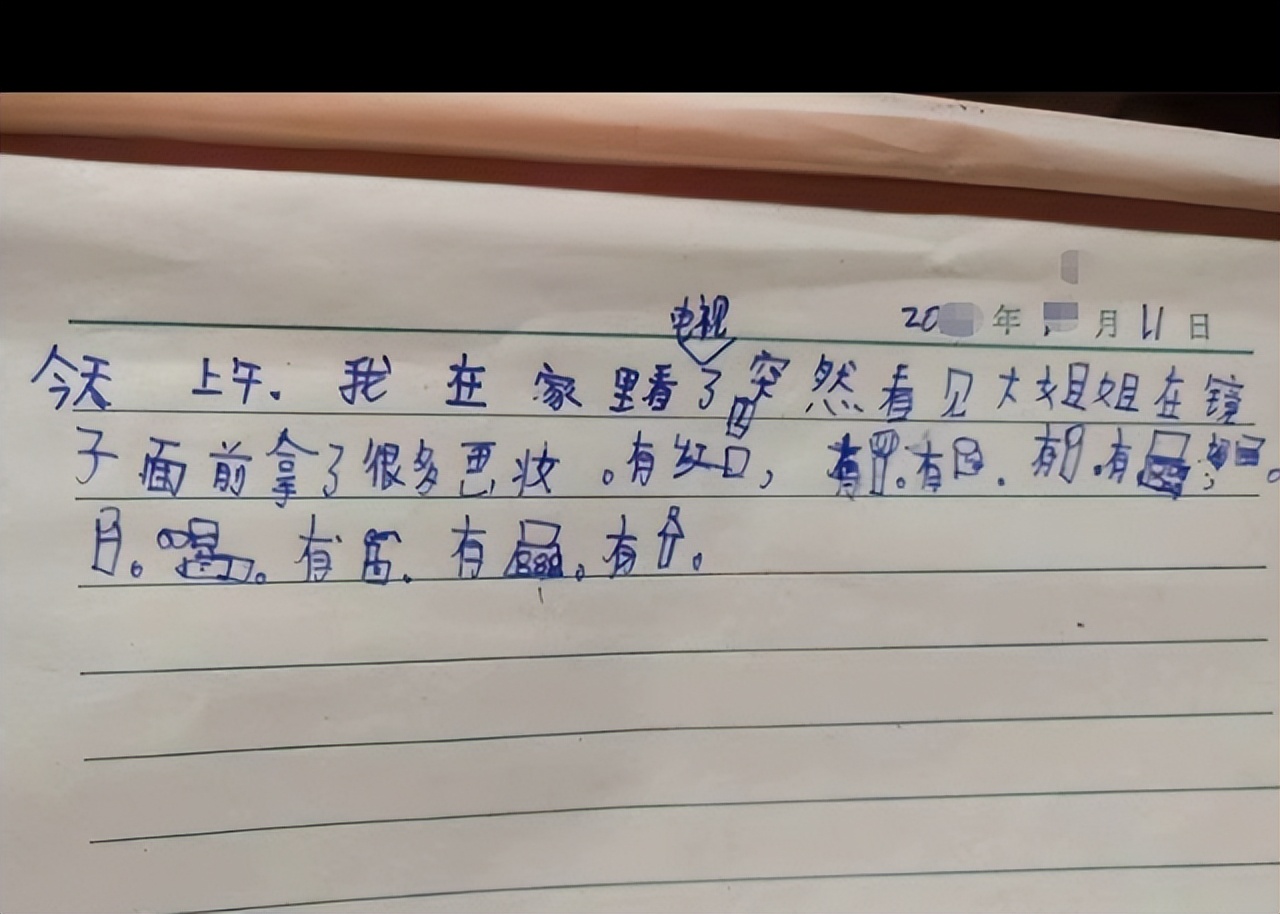 20 年 月 11 日
电视
今天 上午。我在家里看了突然看见大姐姐在镜
子面前拿了很多巴妆。有红口，有。有。有。有。
。。有。有。有。